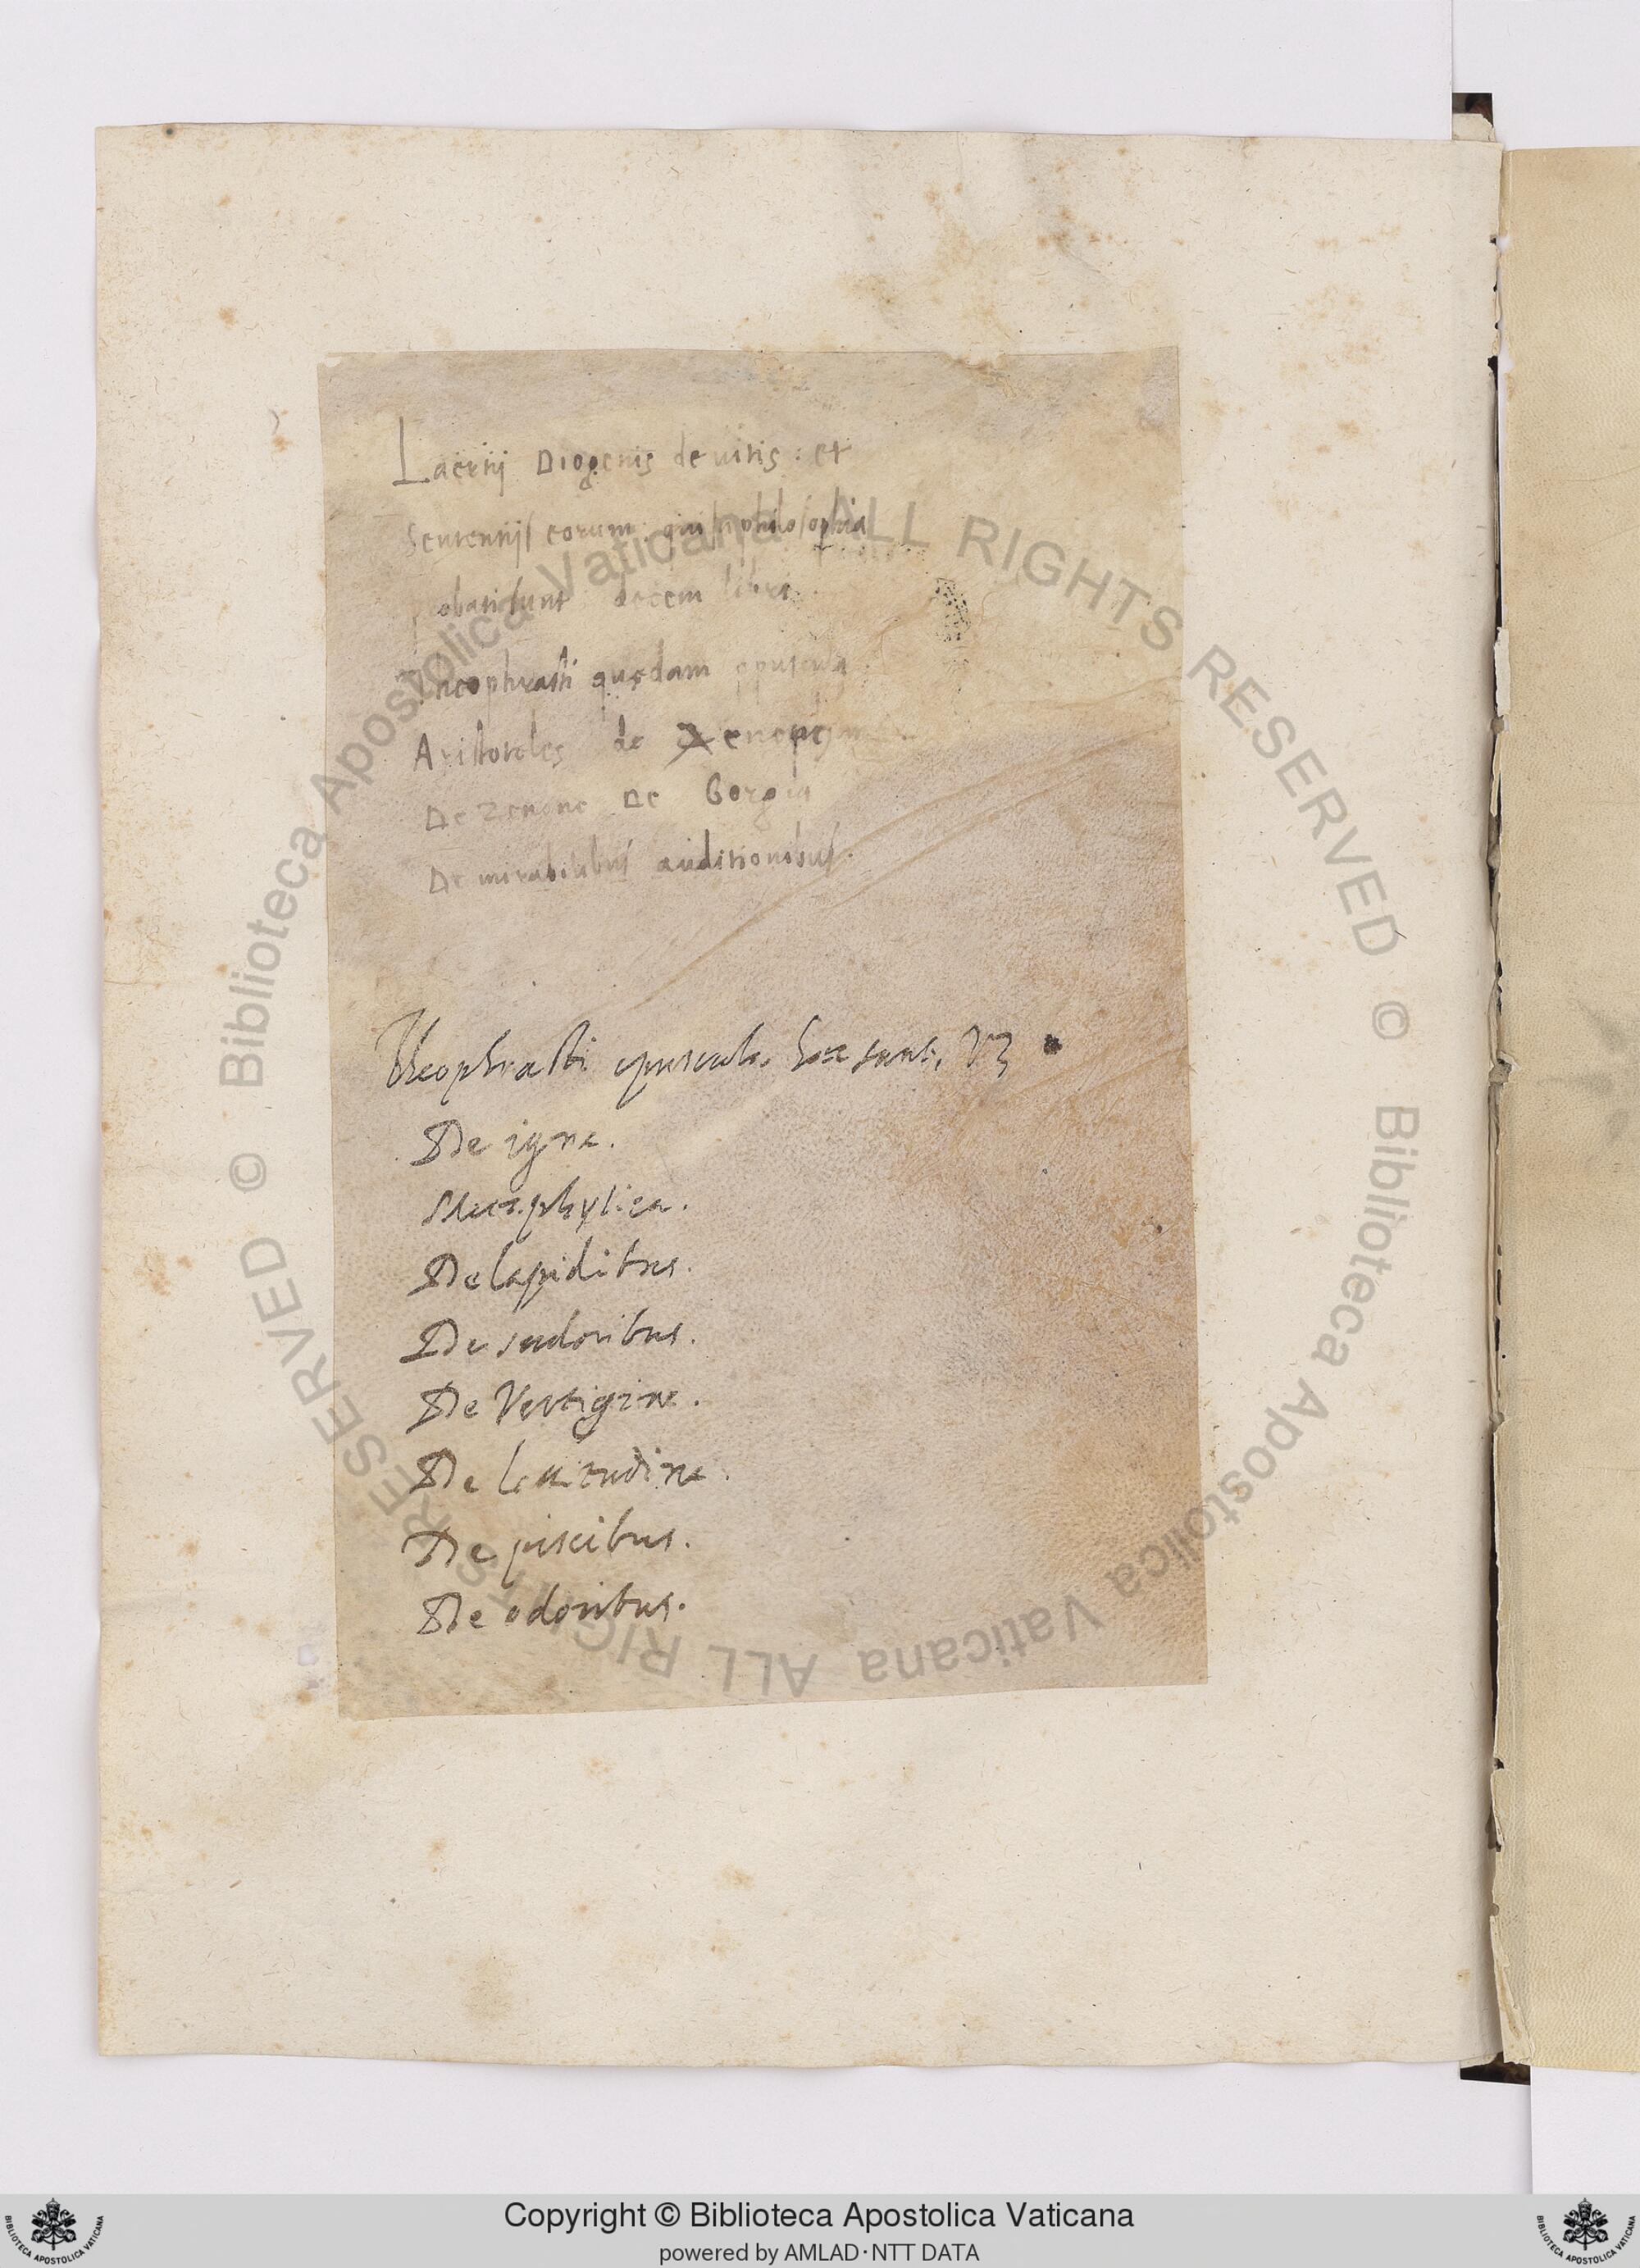 Laertij Diogenis de uitis : et
sententijs eorum qui philosophia
probati sunt decem libri
Theophrasti quędam opuscula.
Aristoteles de Xenophan
De Zenone De Gorgia
De mirabilibus auditionibus.
Theophrasti opuscula hæc sunt, Vz
De igne.
Metaphysica.
De lapidibus.
De sudoribus.
De Vertigine.
De lassitudine.
De piscibus.
De odoribus.
© Biblioteca Apostolica Vaticana ALL RIGHTS RESERVED
© Biblioteca Apostolica Vaticana ALL RIGHTS RESERVED
Copyright © Biblioteca Apostolica Vaticana
powered by AMLAD·NTT DATA
BIBLIOTECA APOSTOLICA VATICANA
BIBLIOTECA APOSTOLICA VATICANA